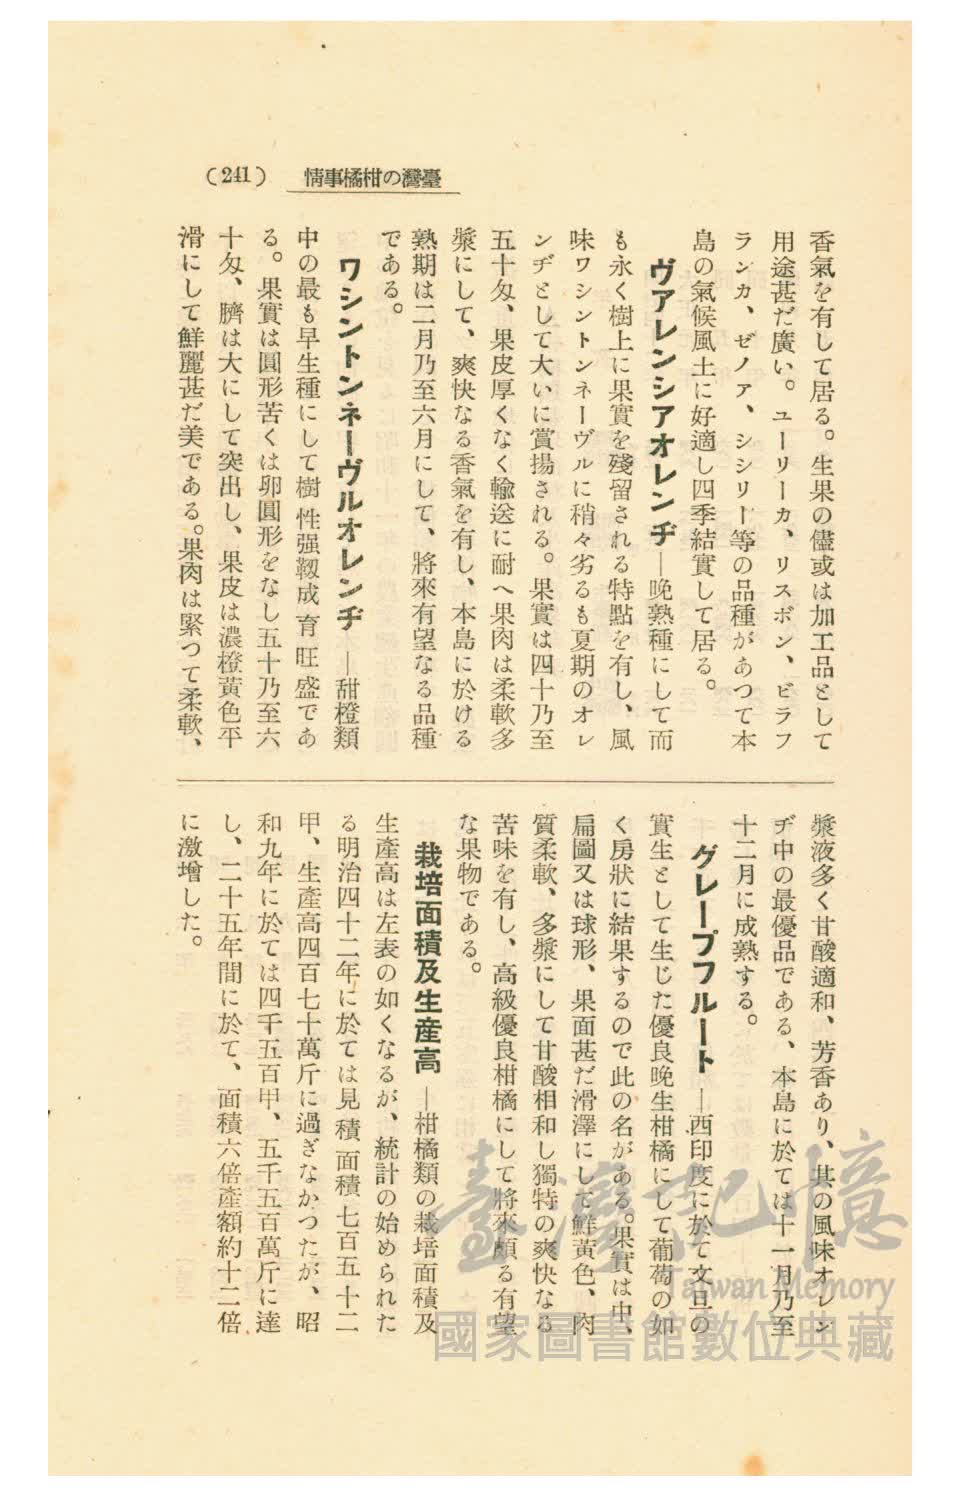 (241) 情事橘柑の灣臺
香氣を有して居る。生果の儘或は加工品として
用途甚だ廣い。ユーリーカ、リスボン、ビラフ
ランカ、ゼノア、シシリー等の品種があつて本
島の氣候風土に好適し四季結實して居る。
ヴアレンシアオレンヂ―晩熟種にして而
も永く樹上に果實を殘留される特點を有し、風
味ワシントンネーヴルに稍々劣るも夏期のオレ
ンヂとして大いに賞揚される。果實は四十乃至
五十匁、果皮厚くなく輸送に耐へ果肉は柔軟多
漿にして、爽快なる香氣を有し、本島に於ける
熟期は二月乃至六月にして、將來有望なる品種
である。
ワシントンネーヴルオレンヂ―甜橙類
中の最も早生種にして樹性强靱成育旺盛であ
る。果實は圓形苦くは卵圓形をなし五十乃至六
十匁、臍は大にして突出し、果皮は濃橙黃色平
滑にして鮮麗甚だ美である。果肉は緊つて柔軟、
漿液多く甘酸適和、芳香あり、其の風味オレン
ヂ中の最優品である、本島に於ては十一月乃至
十二月に成熟する。
グレープフルート―西印度に於て文旦の
實生として生じた優良晩生柑橘にして葡萄の如
く房狀に結果するので此の名がある。果實は中、
扁圖又は球形、果面甚だ滑澤にして鮮黃色、肉
質柔軟、多漿にして甘酸相和し獨特の爽快なる
苦味を有し、高級優良柑橘にして將來頗る有望
な果物である。
栽培面積及生産高―柑橘類の栽培面積及
生產高は左表の如くなるが、統計の始められた
る明治四十二年に於ては見積面積七百五十二
甲、生產高四百七十萬斤に過ぎなかつたが、昭
和九年に於ては四千五百甲、五千五百萬斤に達
し、二十五年間に於て、面積六倍產額約十二倍
に激增した。
臺灣記憶
Taiwan Memory
國家圖書館數位典藏